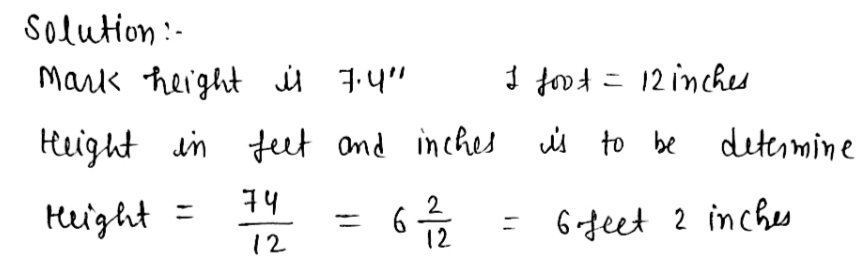 Solution :-
Mark height is 7.4" 1 foot = 12 inches
Height in feet and inches is to be determine
Height = 74/12 = 6 2/12 = 6 feet 2 inches